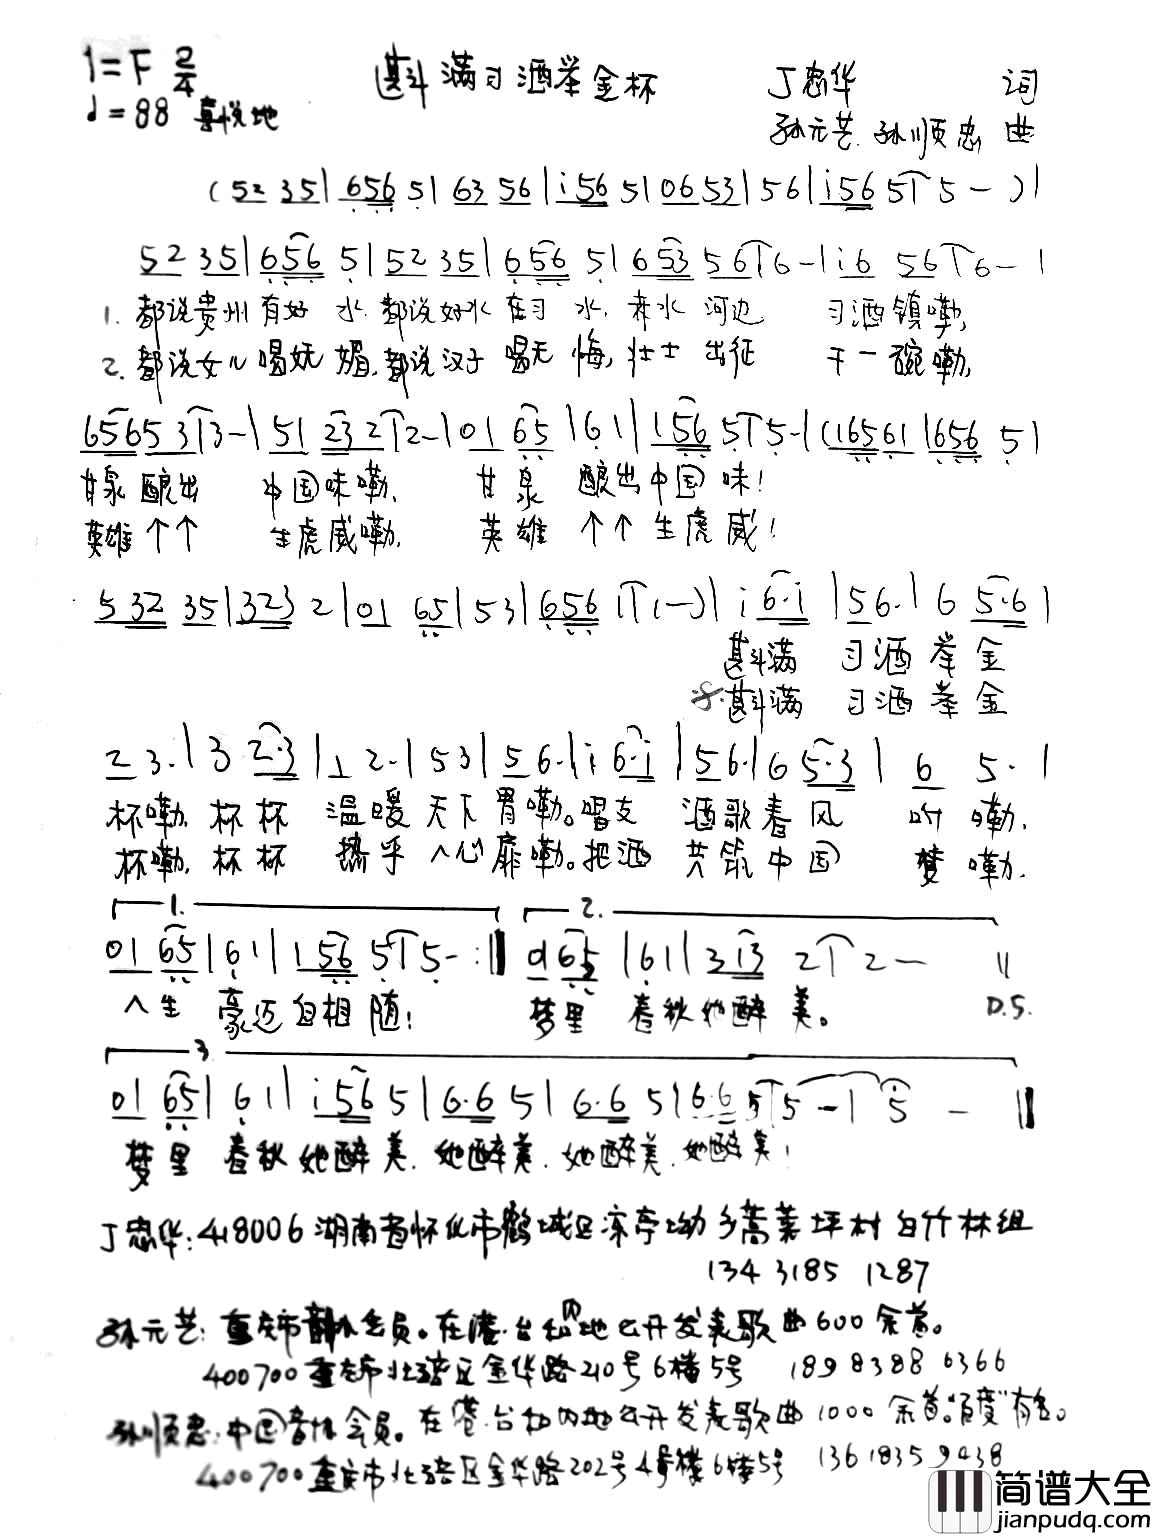 1=F 2/4
♩=88 喜悦地
斟满习酒举金杯
丁忠华 词
孙元艺.孙顺忠 曲
(52 35|656 5|63 56|i56 5|06 53|56|i56 5|5-)|
52 35|656 5|52 35|656 5|653 56|6-|i6 56|6-|
1. 都说贵州有好 水.都说好水在习 水.赤水 河边 习酒镇嘞,
2. 都说女儿喝妩 媚,都说汉子 喝无 悔,壮士 出征 干一碗嘞,
6565 3|3-|51 23 2|2-|01 65|61|156 5|5-|(1656 1|656 5|
甘泉 酿出 中国味嘞. 甘泉 酿出中国 味!
英雄 个个 生虎威嘞. 英雄 个个 生虎 威!
532 35|323 2|01 65|53|656 1|(1-)|i 6·i|56·|6 5·6|
斟满 习酒 举 金
斟满 习酒 举 金
23·|3 2·3|12·|53|56·|i 6·i|56·|6 5·3|6 5·|
杯嘞. 杯杯 温暖 天下 胃嘞。唱支 酒歌春风 吹 嘞.
杯嘞. 杯杯 热乎 人心 扉嘞。把酒 共筑中国 梦 嘞.
1. 2.
01 65|61|156 5|5-:‖ 01 65|61|3 13 2|2- ‖
人生 豪迈自相 随! 梦里 春秋她醉 美。 D.S.
3.
01 65|61|i56 5|6·6 5|6·6 5|6·6 5|5-|5-‖
梦里 春秋她醉 美.她醉美.她醉美.她醉美!
丁忠华:418006湖南省怀化市鹤城区凉亭坳乡蒿菜坪村白竹林组
134 3185 1287
孙元艺:重庆市音协会员。在港.台和内地公开发表歌曲600余首。
400700重庆市北碚区金华路210号6楼5号 189 8388 0366
孙顺忠:中国音协会员。在港.台和内地公开发表歌曲1000余首。"百度"有名。
400700重庆市北碚区金华路202号4号楼6楼5号 136 1835 9438
简谱大全
jianpudq.com